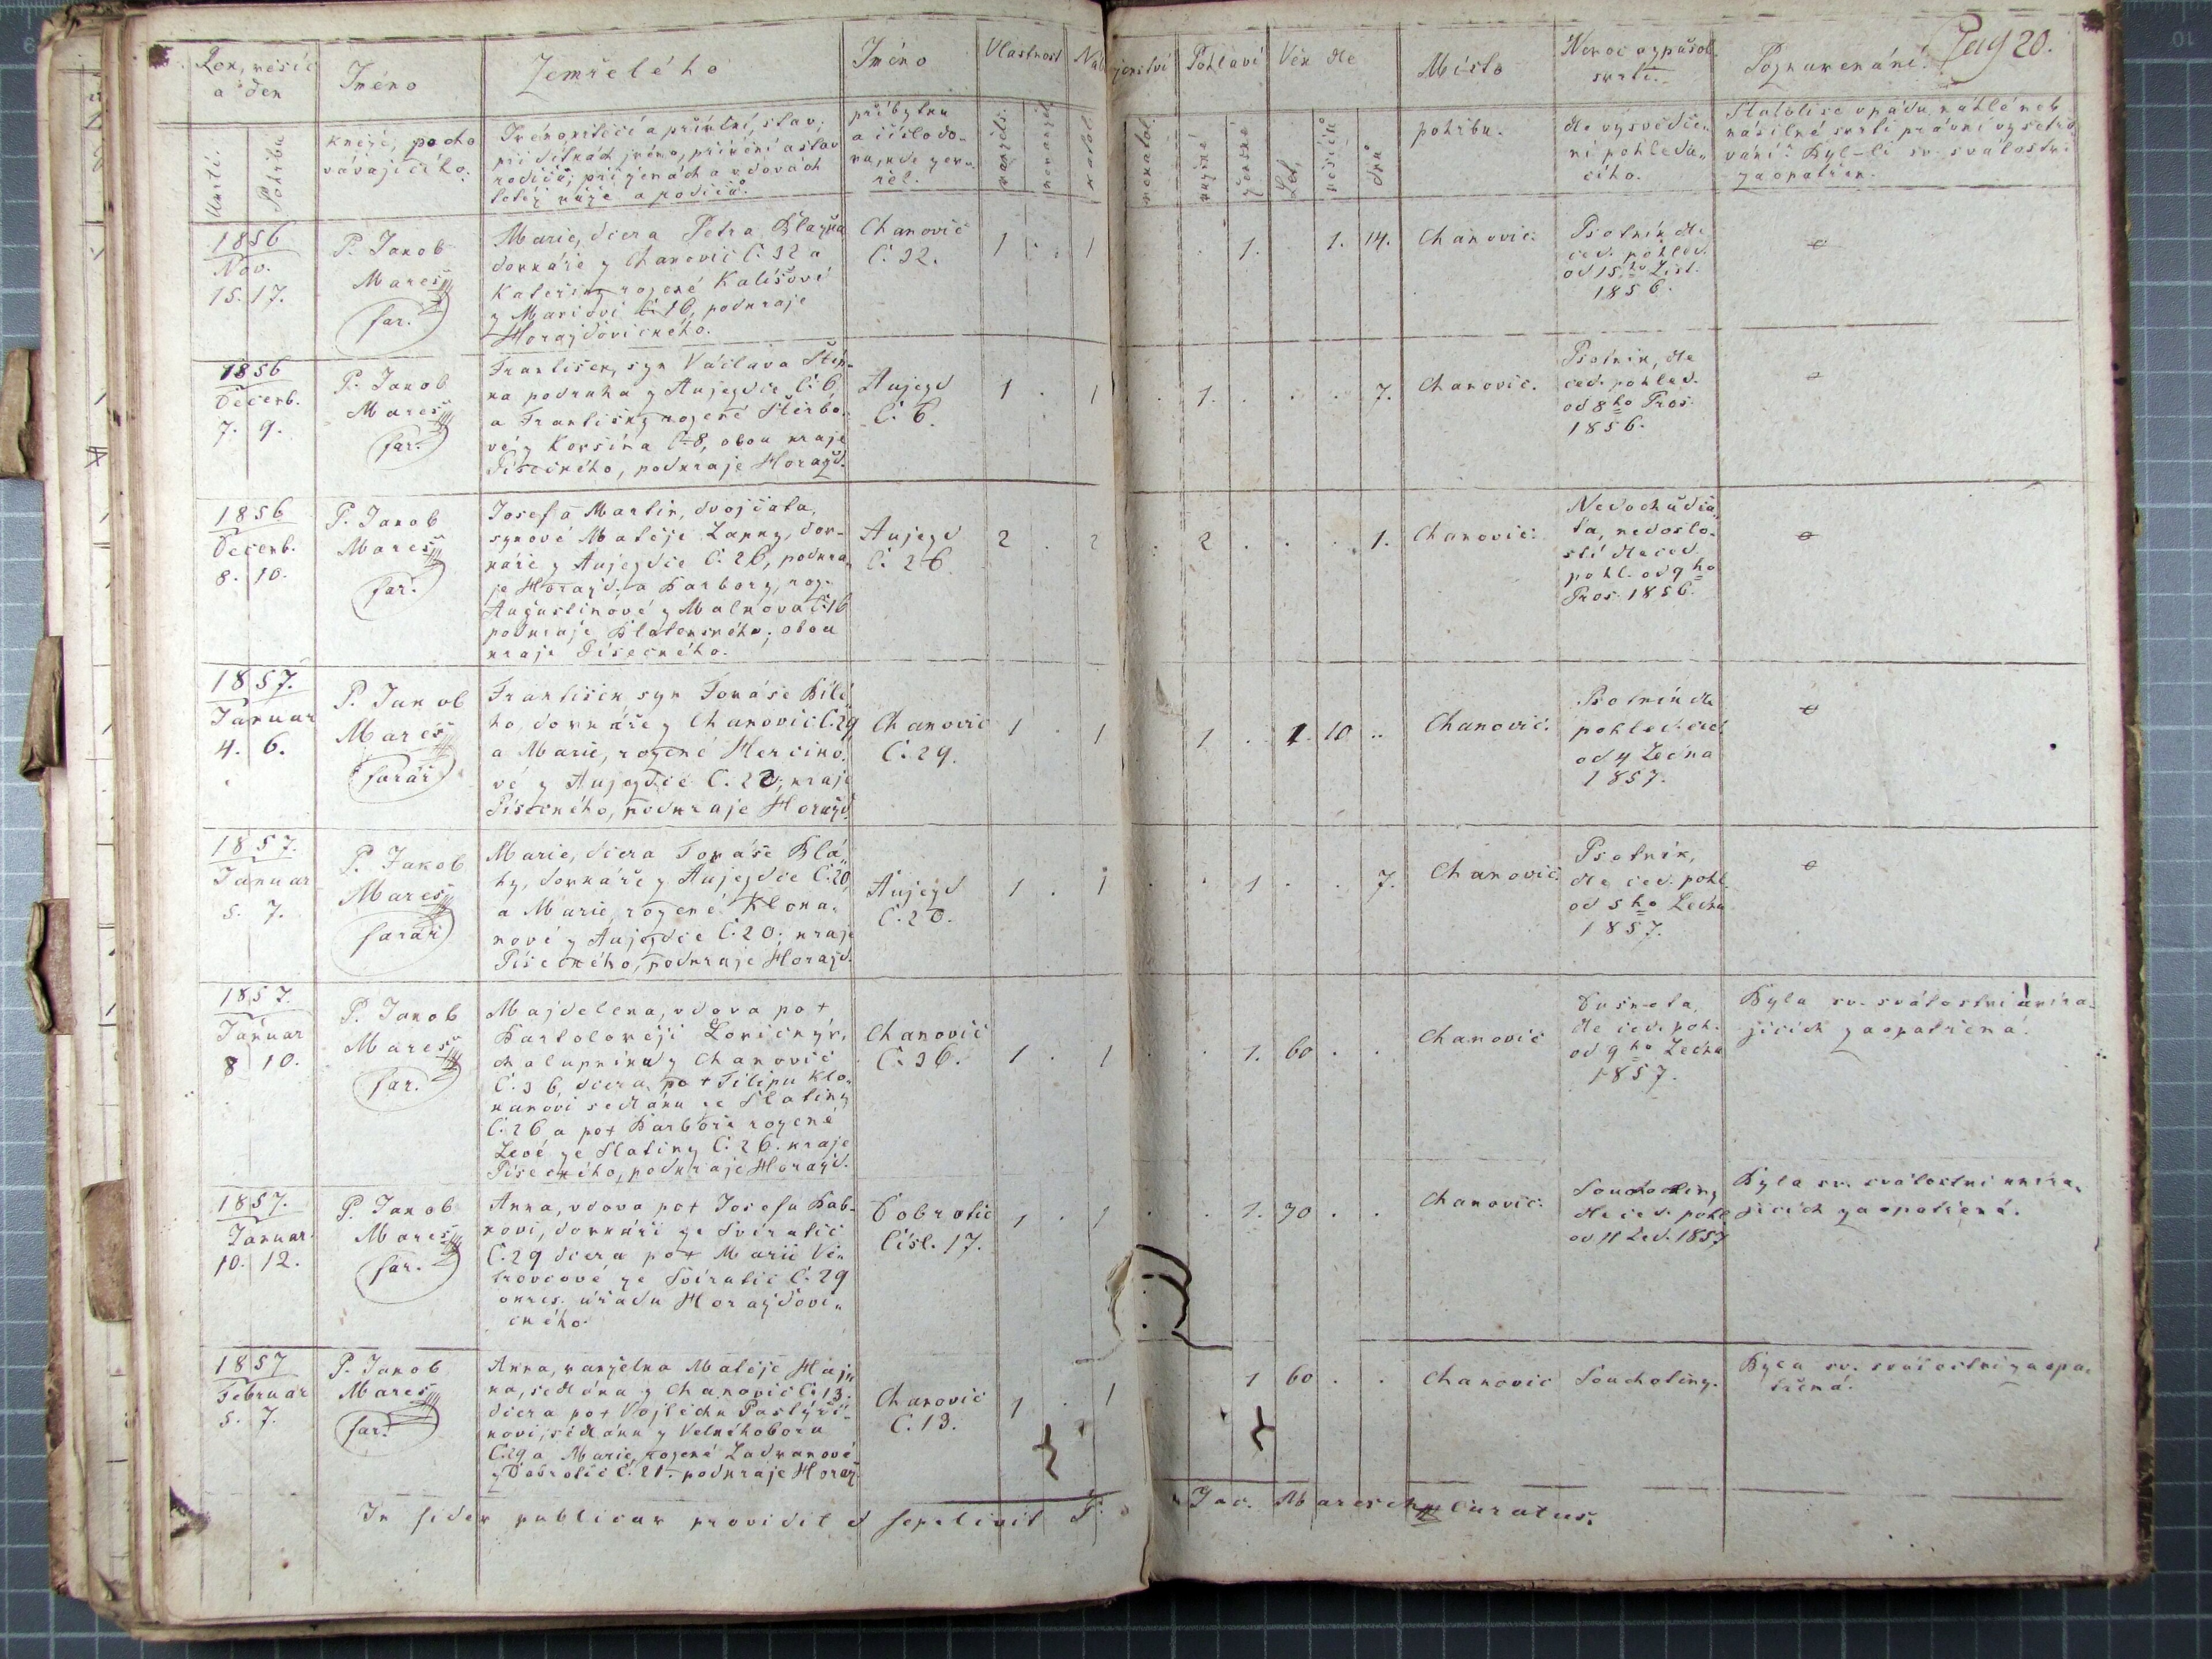 Pag 20.
Rok, měsíc
a den
Jméno
Zemřelého
Jméno
Vlastnost
Pohlaví
Věk dle
Místo
Nemoc a způsob
smrti.
Poznamenání.
Úmrtí.
Pohřbu
kněze, pocho
vávajícího.
Jméno křtící a příjmení, stav;
při dítkách jméno, příjmení a stav
rodičů; při ženách a vdovách
totéž muže a rodičů.
příbytku
a číslo do-
mu, kde zem-
řel.
manžels.
nemanžel.
katol.
nekatol.
mužské
ženské
Let.
měsíců
dnů
pohřbu.
dle vysvědče-
ní pohleda-
cího.
Stalo li se v pádu náhlé neb
násilné smrti právní vyšetřo-
vání? Byl-li sv. svátostmi
zaopatřen.
1856
Nov.
15. 17.
P. Jakob
Mareš
far.
Marie, dcera Petra Blažka
domkáře z Chanovic Č. 32 a
Kateřiny rozené Kališové
z Č. 16, podkraje
Horažďovického.
Chanovic
Č. 32.
1 . 1
. . 1. . 1. 14.
Chanovic.
Psotník dle
ced. pohled.
od 15.ho List.
1856.
1856
Decemb.
7. 9.
P. Jakob
Mareš
far.
František, syn Václava Štěp-
ka podruha z Aujezdce Č. 6
a Františky rozené Štěrbo-
vé z Kovšína Č. 8, obou kraje
Píseckého, podkraje Horažď.
Aujezd
Č. 6.
1 . 1
. 1. . . . 7.
Chanovic.
Psotník, dle
ced. pohled.
od 8ho Pros.
1856.
1856
Decemb.
8. 10.
P. Jakob
Mareš
far.
Josef a Martin, dvojčata,
synové Matěje Zanky, dom-
káře z Aujezdce Č. 26, podkra-
je Horažď. a Barbory, roz.
Augustinové z Malkova Č. 16
podkraje Blatenského; obou
kraje Píseckého.
Aujezd
Č. 26
2 . 2
. 2 . . . 1.
Chanovic.
Nedochůdča-
ta, nedoslo-
stí dle ced.
pohl. od 9ho
Pros. 1856.
1857.
Januar
4. 6.
P. Jakob
Mareš
farář
František, syn Tomáše Bílé-
ho, domkáře z Chanovic Č. 29
a Marie, rozené Hercíko-
vé z Aujezdce Č. 20, kraje
Píseckého, podkraje Horažď.
Chanovic
Č. 29.
1 . 1
1 . 1. 10 ..
Chanovic.
Psotník dle
pohled. ced.
od 4 Ledna
1857.
1857.
Januar
5. 7.
P. Jakob
Mareš
farář
Marie, dcera Tomáše Blá-
hy, domkáře z Aujezdce Č. 20,
a Marie, rozené Kloka-
nové z Aujezdce Č. 20, kraje
Píseckého, podkraje Horažď.
Aujezd
Č. 20.
1 . 1
. . 1 . . 7.
Chanovic.
Psotník,
dle ced. pohl.
od 5ho Ledna
1857.
1857.
Januar
8 10.
P. Jakob
Mareš
far.
Majdelena, vdova po †
Bartoloměji
chalupníku z Chanovic
Č. 36, dcera po † Filipu Klo-
kanovi sedláku ze Slatiny
Č. 26 a po † Barboře rozené
ze Slatiny Č. 26. kraje
Píseckého, podkraje Horažď.
Chanovic
Č. 36.
1 . 1
. . 1. 60 . .
Chanovic
Dusnota,
dle ced. poh.
od 9ho Ledna
1857.
Byla sv. svátostmi umíra-
jících zaopatřená.
1857.
Januar
10. 12.
P. Jakob
Mareš
far.
Anna, vdova po † Josefu Bab-
kovi, domkáři ze Svíratic
Č. 29 dcera po † Marii Vi-
trovcové ze Svíratic Č. 29
okres. úřadu Horažďovi-
ckého.
Dobrotic
Čísl. 17.
1 . 1
. . 1. 70 . .
Chanovic.
Souchotiny
dle ced. pohl.
od 11 Led. 1857
Byla sv. svátostmi umíra-
jících zaopatřená.
1857
Februar
5. 7.
P. Jakob
Mareš
far.
Anna, manželka Matěje Háj-
ka, sedláka z Chanovic Č. 13.
dcera po † Vojtěchu Pastýři-
kovi, sedláku z Velkého boru
Č. 29 a Marie, rozené Zadrakové
z Dobrotic Č. 21. podkraje Horaž.
Chanovic
Č. 13.
1 . 1
1 60 . .
Chanovic
Souchotiny.
Byla sv. svátostmi zaopa-
třená.
In fidem publicam providit et sepelivit P. Jac. Maresch Curatus.